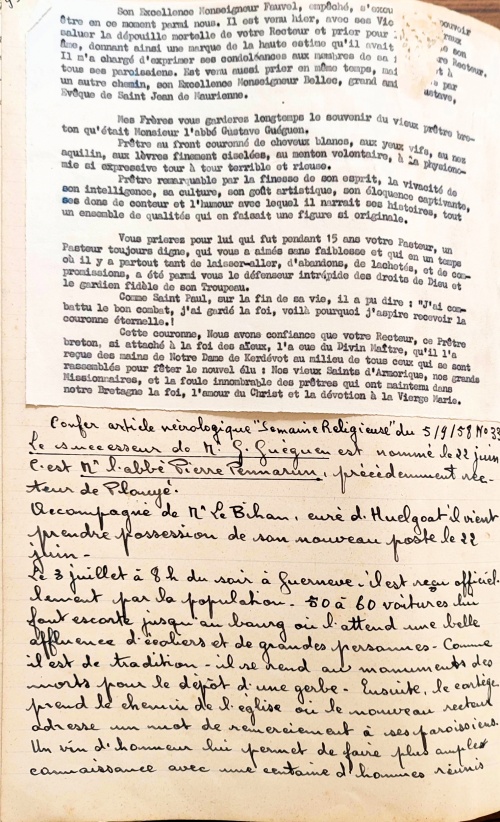 Son Excellence Monseigneur Fauvel, empêché, s'excu
être en ce moment parmi nous. Il est venu hier, avec ses Vic
saluer la dépouille mortelle de votre Recteur et prier pour
âme, donnant ainsi une marque de la haute estime qu'il avait
Il m'a chargé d'exprimer ses condoléances aux membres de sa
tous ses paroissiens. Est venu aussi prier en même temps, mai
un autre chemin, son Excellence Monseigneur Bellec, grand ami
Evêque de Saint Jean de Maurienne.
pouvoir
son
Recteur.
et à
ustave,
Mes Frères vous garderez longtemps le souvenir du vieux prêtre bre-
ton qu'était Monsieur l'abbé Gustave Guéguen.
Prêtre au front couronné de cheveux blancs, aux yeux vifs, au nez
aquilin, aux lèvres finement ciselées, au menton volontaire, à la physiono-
mie si expressive tour à tour terrible et rieuse.
Prêtre remarquable par la finesse de son esprit, la vivacité de
son intelligence, sa culture, son goût artistique, son éloquence captivante,
ses dons de conteur et l'humour avec lequel il narrait ses histoires, tout
un ensemble de qualités qui en faisait une figure si originale.
Vous prierez pour lui qui fut pendant 15 ans votre Pasteur, un
Pasteur toujours digne, qui vous a aimés sans faiblesse et qui en un temps
où il y a partout tant de laisser-aller, d'abandons, de lachetés, et de com-
promissions, a été parmi vous le défenseur intrépide des droits de Dieu et
le gardien fidèle de son Troupeau.
Comme Saint Paul, sur la fin de sa vie, il a pu dire : "J'ai com-
battu le bon combat, j'ai gardé la foi, voilà pourquoi j'aspire recevoir la
couronne éternelle.!
Cette couronne, Nous avons confiance que votre Recteur, ce Prêtre
breton, si attaché à la foi des aïeux, l'a eue du Divin Maître, qu'il l'a
reçue des mains de Notre Dame de Kerdévot au milieu de tous ceux qui se sont
rassemblés pour fêter le nouvel élu : Nos vieux Saints d'Armorique, nos grands
Missionnaires, et la foule innombrable des prêtres qui ont maintenu dans
notre Bretagne la foi, l'amour du Christ et la dévotion à la Vierge Marie.
Confer article nécrologique "Semaine Religieuse" du 5/9/58 No 33
Le successeur de Mr G Guéguen est nommé le 22 juin
C'est Mr l'abbé Pierre Pennarun, précédemment rec-
teur de Plouyé.
Accompagné de Mr Le Bihan, curé d'Huelgoat il vient
prendre possession de son nouveau poste le 22
juin -
Le 3 juillet à 8 h du soir à Guerneve - il est reçu officiel-
lement par la population - 50 à 60 voitures lui
font escorte jusqu'au bourg où l'attend une belle
affluence d'écoliers et de grandes personnes - Comme
il est de tradition - il se rend au monuments des
morts pour le dépôt d'une gerbe - Ensuite, le cortège
prend le chemin de l'église où le nouveau recteur
adresse un mot de remerciement à ses paroissiens.
Un vin d'honneur lui permet de faire plus ample
connaissance avec une centaine d'hommes réunis